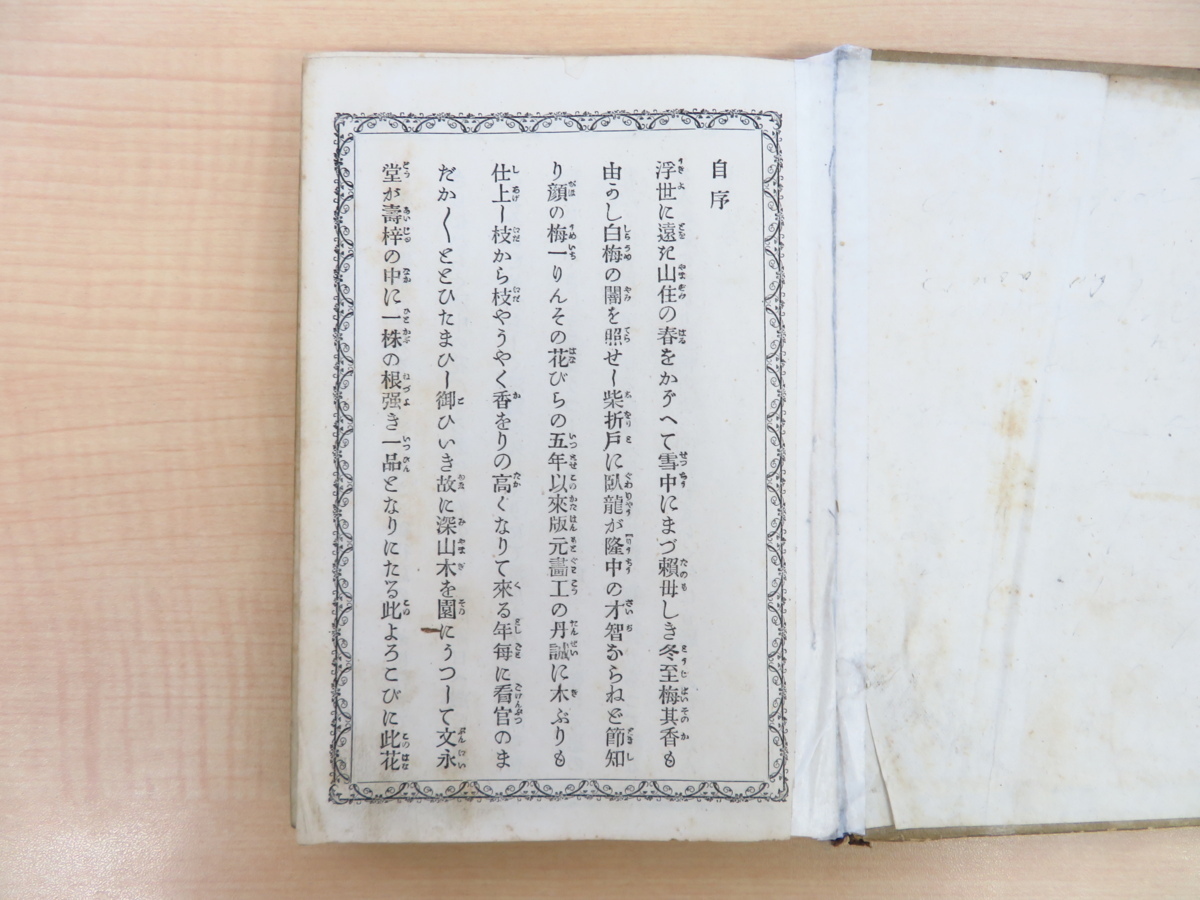 自序
浮世に遠き山住の春をかぞへて雪中にまづ賴母しき冬至梅其香も
由かし白梅の闇を照せし柴折戸に臥龍が隆中の才智ならねど節知
り顔の梅一りんその花びらの五年以來版元畵工の丹誠に木ぶりも
仕上し枝から枝やうやく香をりの高くなりて來る年每に看官のま
だか〱ととひたまひし御ひいき故に深山木を園にうつして文永
堂が壽梓の中に一株の根强き一品となりにたる此よろこびに此花